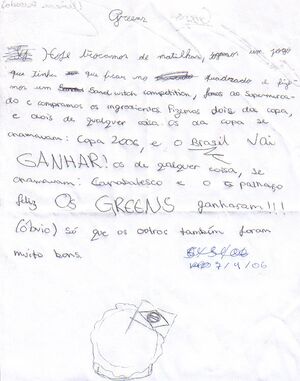 Greens
Hoje trocamos de matilhas, jogamos um jogo
que tinha que ficar no quadrado e fize-
mos um Sandwitch competition, fomos ao Supermerca-
do e compramos os ingredientes. Fizemos dois da copa,
e dois de qualquer coisa. Os da copa se
chamavam: Copa 2006, e o Brasil Vai
GANHAR! os de qualquer coisa, se
chamavam: Carnavalesco e o palhaço
feliz OS GREENS ganharam!!!
(óbvio) Só que os outros também foram
muito bons.
7/4/06